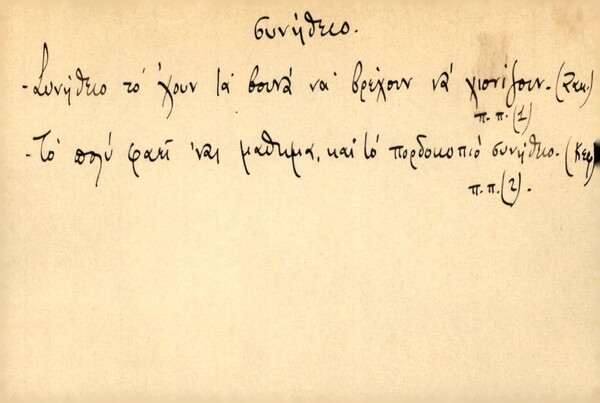 συνήθειο.
- Συνήθειο τό 'χουν τά βουνά νά βρέχουν νά χιονίζουν. (Ζακ.)
π.π. (1)
- Τό πολύ φαΐ 'ναι μάθημα, καί τό πορδοκοπιό συνήθειο. (Κεφ)
π.π. (2).